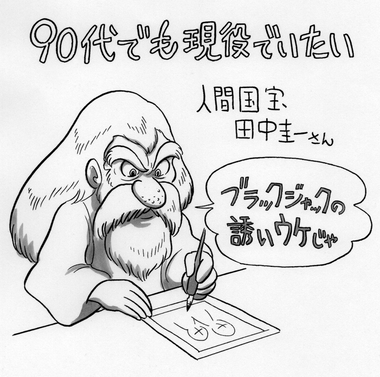 90代でも現役でいたい
人間国宝
田中圭一さん
ブラックジャックの
誘いウケじゃ